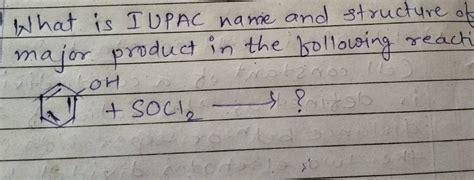 What is IUPAC name and structure of
major product in the following reacti
OH
+ SOCl₂ ⟶ ?